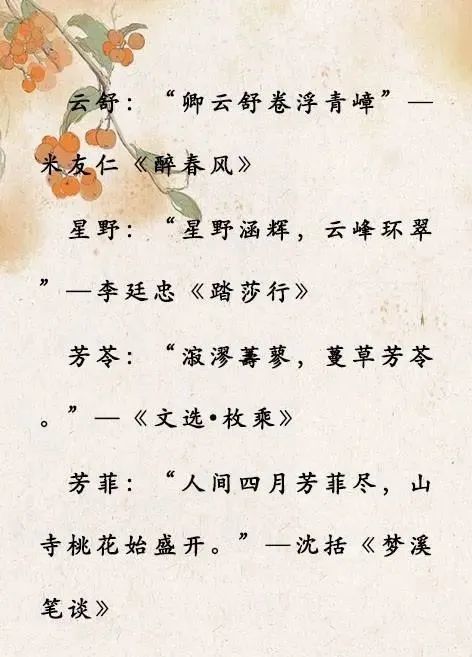 云舒：“卿云舒卷浮青嶂”—
米友仁《醉春风》
星野：“星野涵辉，云峰环翠
”—李廷忠《踏莎行》
芳苓：“漃漻薵蓼，蔓草芳苓
。”—《文选•枚乘》
芳菲：“人间四月芳菲尽，山
寺桃花始盛开。”—沈括《梦溪
笔谈》